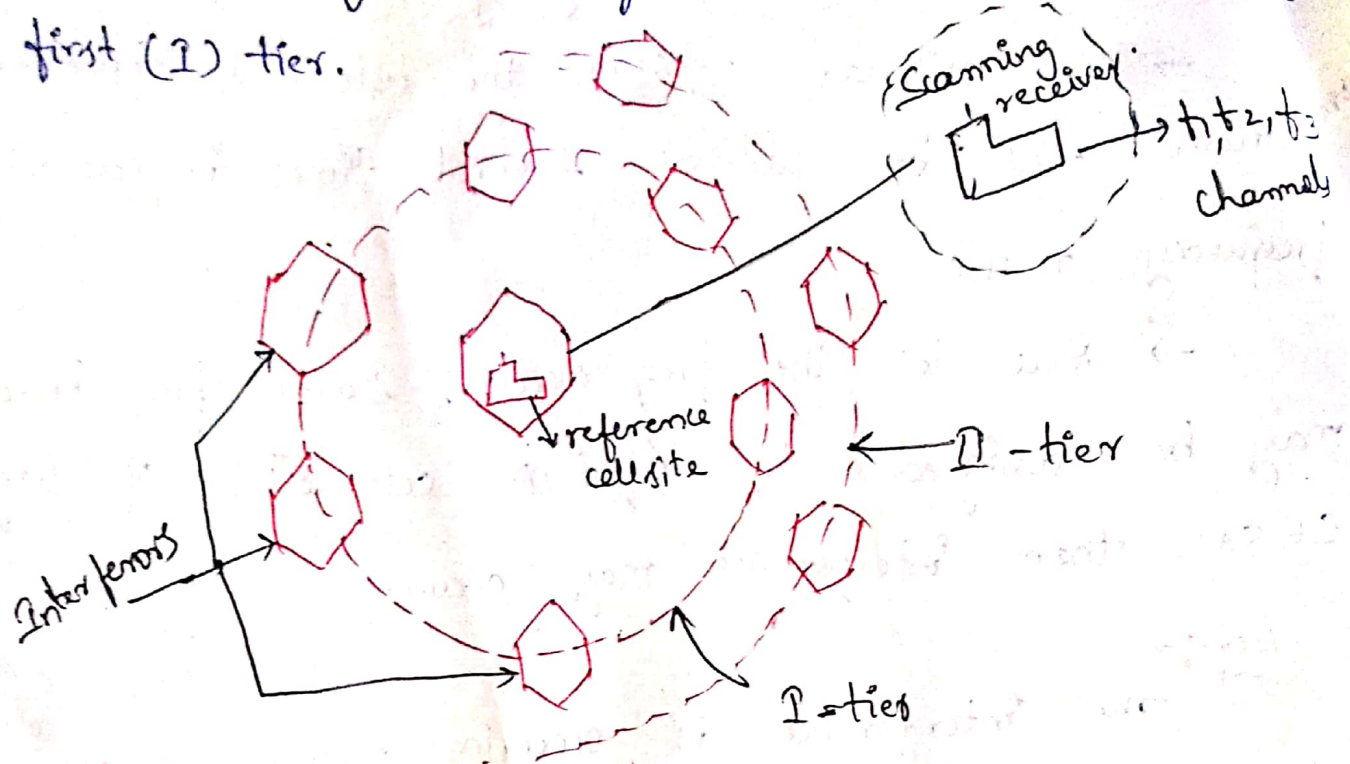 first (I) tier.
Scanning
receiver.
f1, f2, f3
channels
reference
cellsite
II - tier
Interferors
I - tier